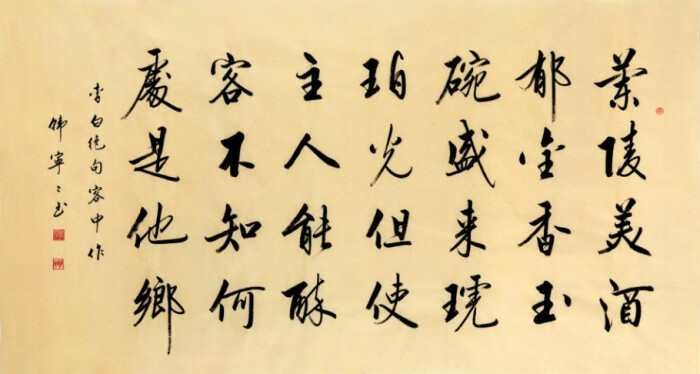 蘭陵美酒
郁金香玉
碗盛来琥
珀光但使
主人能醉
客不知何
處是他鄉
李白绝句客中作
韩寧〻书